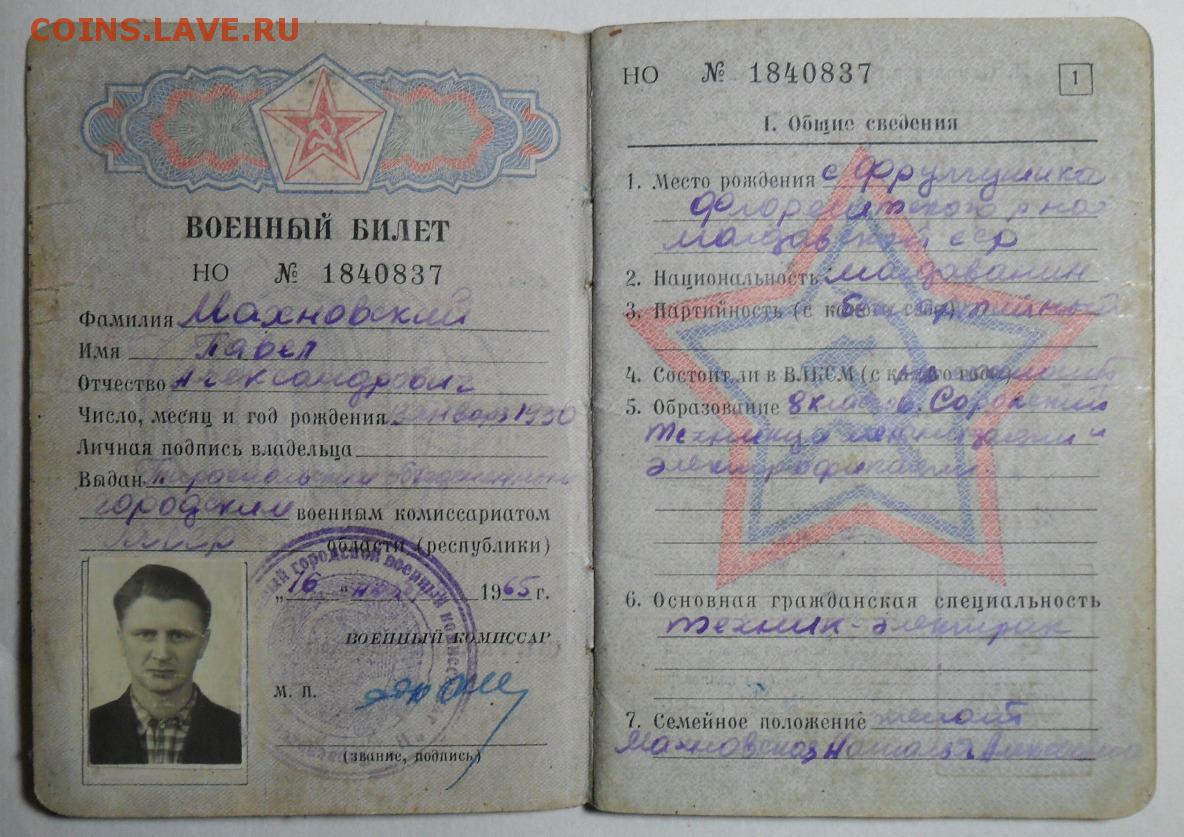 COINS.LAVE.RU
ВОЕННЫЙ БИЛЕТ
НО № 1840837
Фамилия Махновский
Имя Павел
Отчество Александрович
Число, месяц и год рождения января 1930
Личная подпись владельца
Выдан Тираспольским
городским военным комиссариатом
области (республики)
"16" 1965 г.
ВОЕННЫЙ КОМИССАР
М. П.
(звание, подпись)
городской военный комиссариат
НО № 1840837
1
I. Общие сведения
1. Место рождения с Фрумушика
района
ССР
2. Национальность молдаванин
3. Партийность (с какого года)
4. Состоит ли в ВЛКСМ (с какого года)
5. Образование 8 классов. Сорокский
техникум и
электрофикации.
6. Основная гражданская специальность
техник-электрик
7. Семейное положение женат
Махновская Наталья Алексеевна